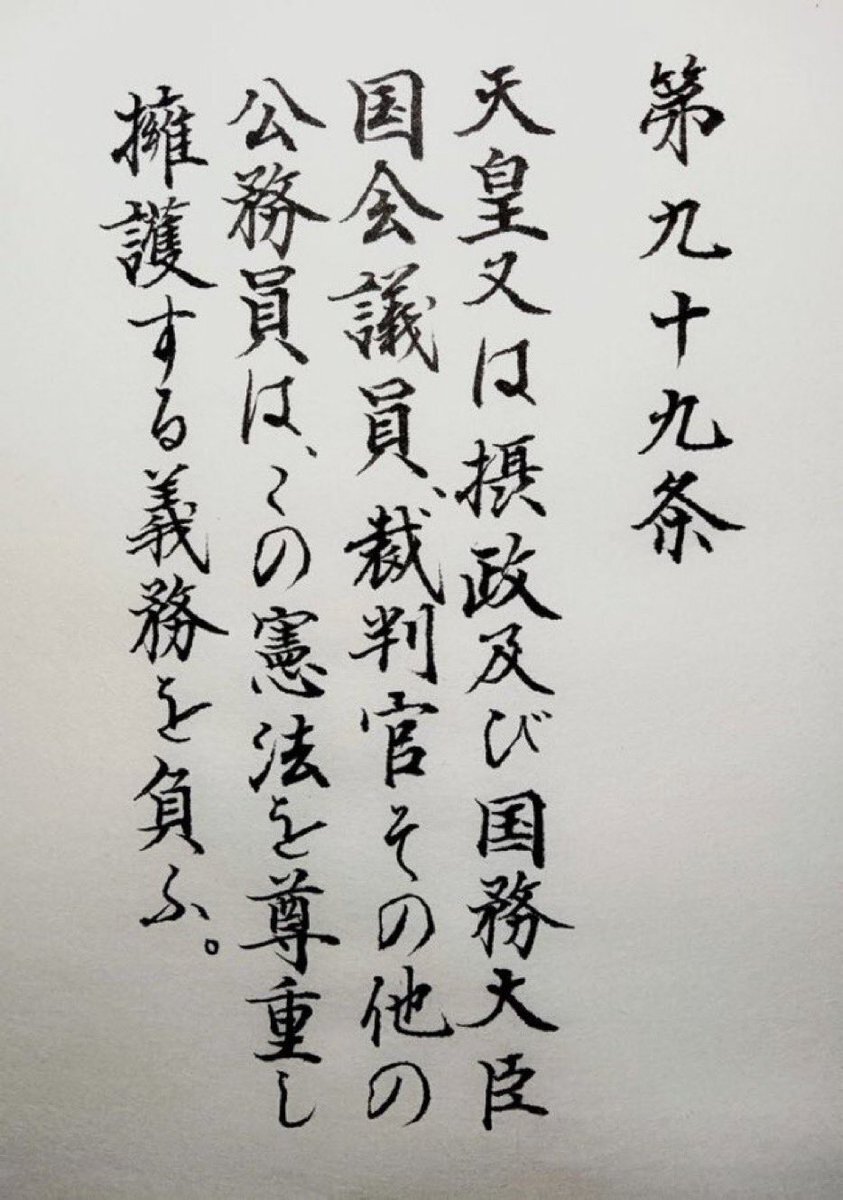 第九十九条
天皇又は摂政及び国務大臣
国会議員、裁判官その他の
公務員は、この憲法を尊重し
擁護する義務を負ふ。